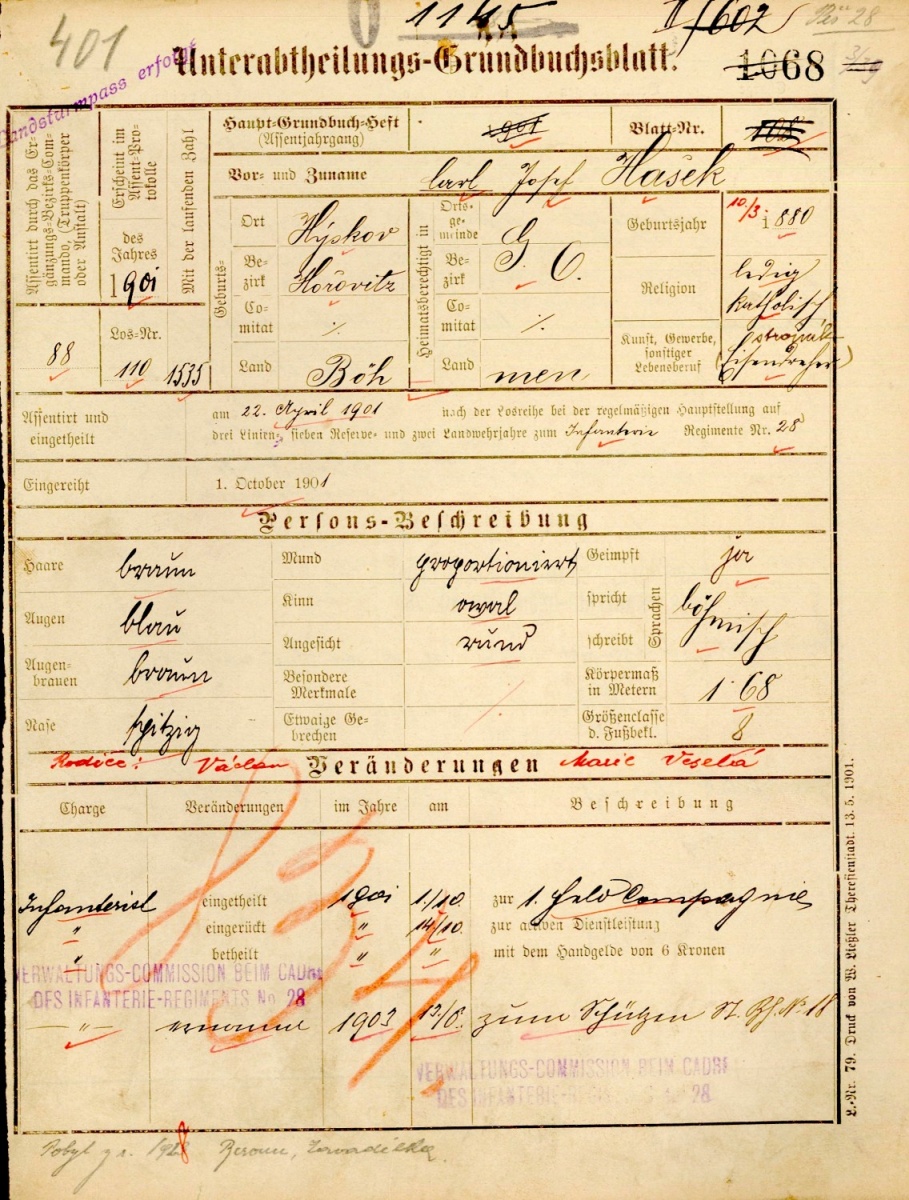 401
1145
II/602
Landsturmpass erfolgt
Unterabtheilungs-Grundbuchsblatt.
1068
Assentirt durch das Ergänzungs-Bezirks-Commando, (Truppenkörper oder Anstalt)
88
Erscheint im Assent-Protokolle
des Jahres
1901
Los-Nr.
110
Mit der laufenden Zahl
1535
Haupt-Grundbuch-Heft
(Assentjahrgang)
1901
Blatt-Nr.
Vor- und Zuname
Carl Josef Hašek
Geburts-
Ort
Hýskov
Bezirk
Hořovitz
Comitat
./.
Land
Böh
Heimatsberechtigt in
Ortsgemeinde
G. O.
Bezirk
Comitat
./.
Land
men
Geburtsjahr
10/3 1880
Religion
ledig
katholisch
Kunst, Gewerbe, sonstiger Lebensberuf
strojník
(Eisendreher)
Assentirt und eingetheilt
am 22. April 1901 nach der Losreihe bei der regelmäßigen Hauptstellung auf
drei Linien-, sieben Reserve- und zwei Landwehrjahre zum Infanterie Regimente Nr. 28
Eingereiht
1. October 1901
Persons-Beschreibung
Haare braun
Augen blau
Augenbrauen braun
Nase spitzig
Mund proportioniert
Kinn oval
Angesicht rund
Besondere Merkmale
Etwaige Gebrechen
./.
Geimpft ja
spricht
schreibt
Sprachen
böhmisch
Körpermaß in Metern 1·68
Größenclasse d. Fußbekl. 8
Rodiče: Václav
Veränderungen
Marie Veselá
Charge Veränderungen im Jahre am Beschreibung
Infanterist eingetheilt 1901 1./10 zur 1. Feld Compagnie
" eingerückt " 14/10 zur activen Dienstleistung
" betheilt " " mit dem Handgelde von 6 Kronen
VERWALTUNGS-COMMISSION BEIM CADRE
DES INFANTERIE-REGIMENTS No 28
" ernannt 1903 zum Schützen St. Bf. No 18
834
VERWALTUNGS-COMMISSION BEIM CADRE
DES INFANTERIE-REGIMENTS No 28
Pobyt z r. 1928 Beroun,
L.-Nr. 79. Druck von W. Ließler Theresienstadt. 13. 5. 1901.